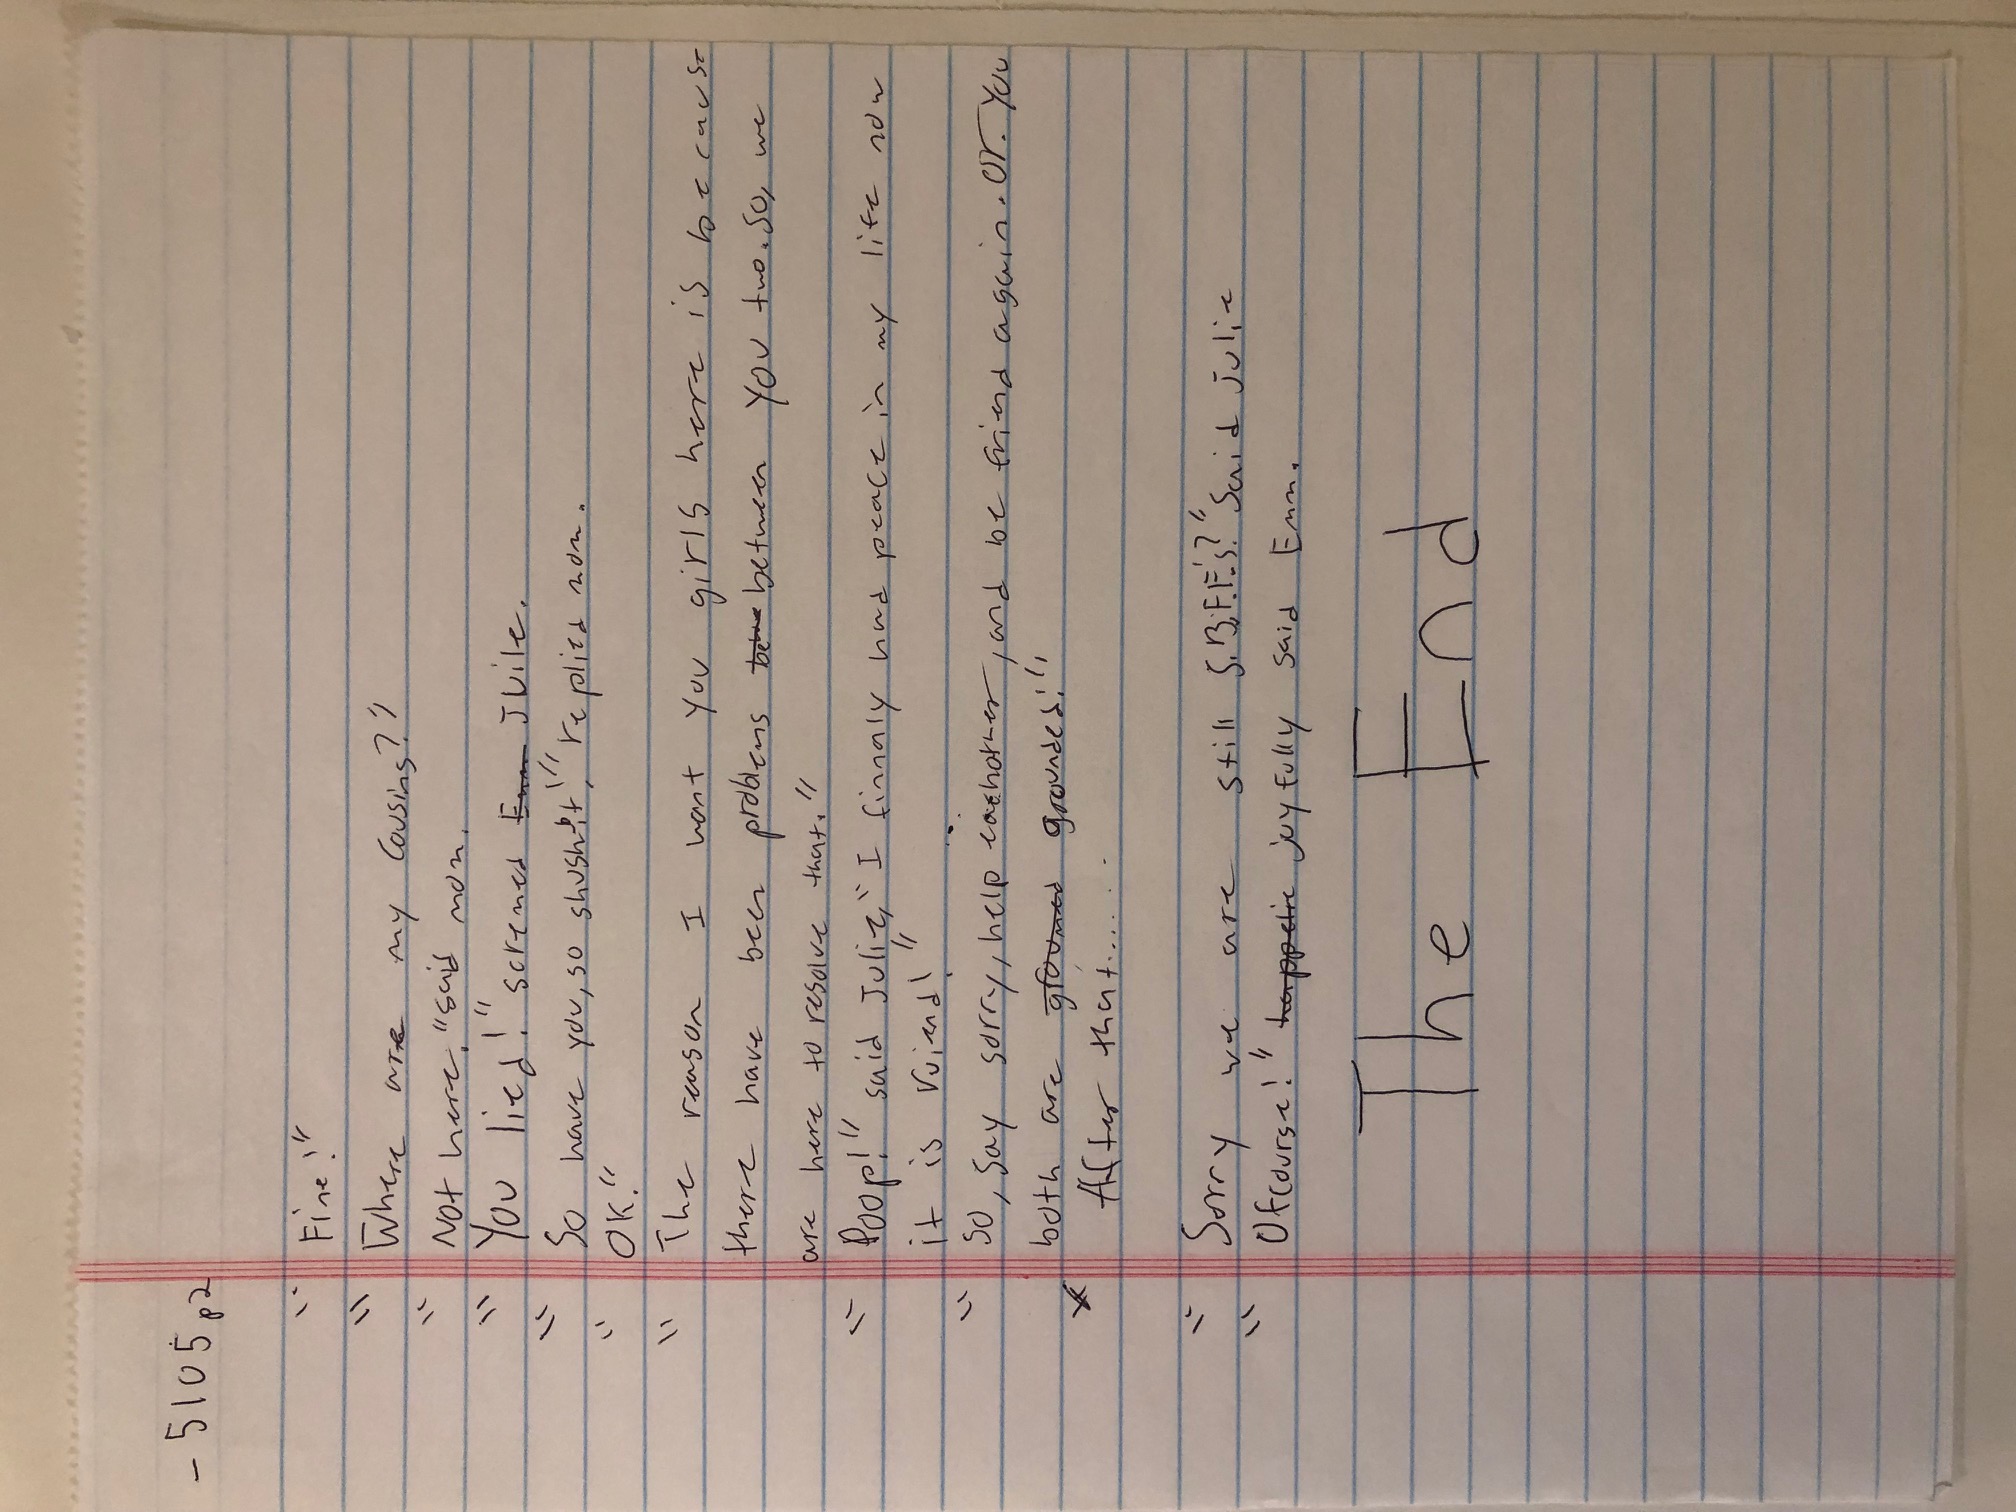 - 5105 p2
" Fine!"
" Where are my Cousins?"
" Not here." said mom.
" You lied!" scremed Emm Juile.
" So have you, so shush it!" replied mom.
" OK."
" The reason I want you girls here is because
there have been problems between you two. So, we
are here to resolve that."
" Poop!" said Julie, "I finnaly had peace in my life now
it is ruiend!"
" So, say sorry, help eachother, and be friend again. Or. You
both are grounded!"
After that......
" Sorry we are still S.B.F.F.'s?" Said Julie
" Ofcourse!" joyfully said Emm.
The End